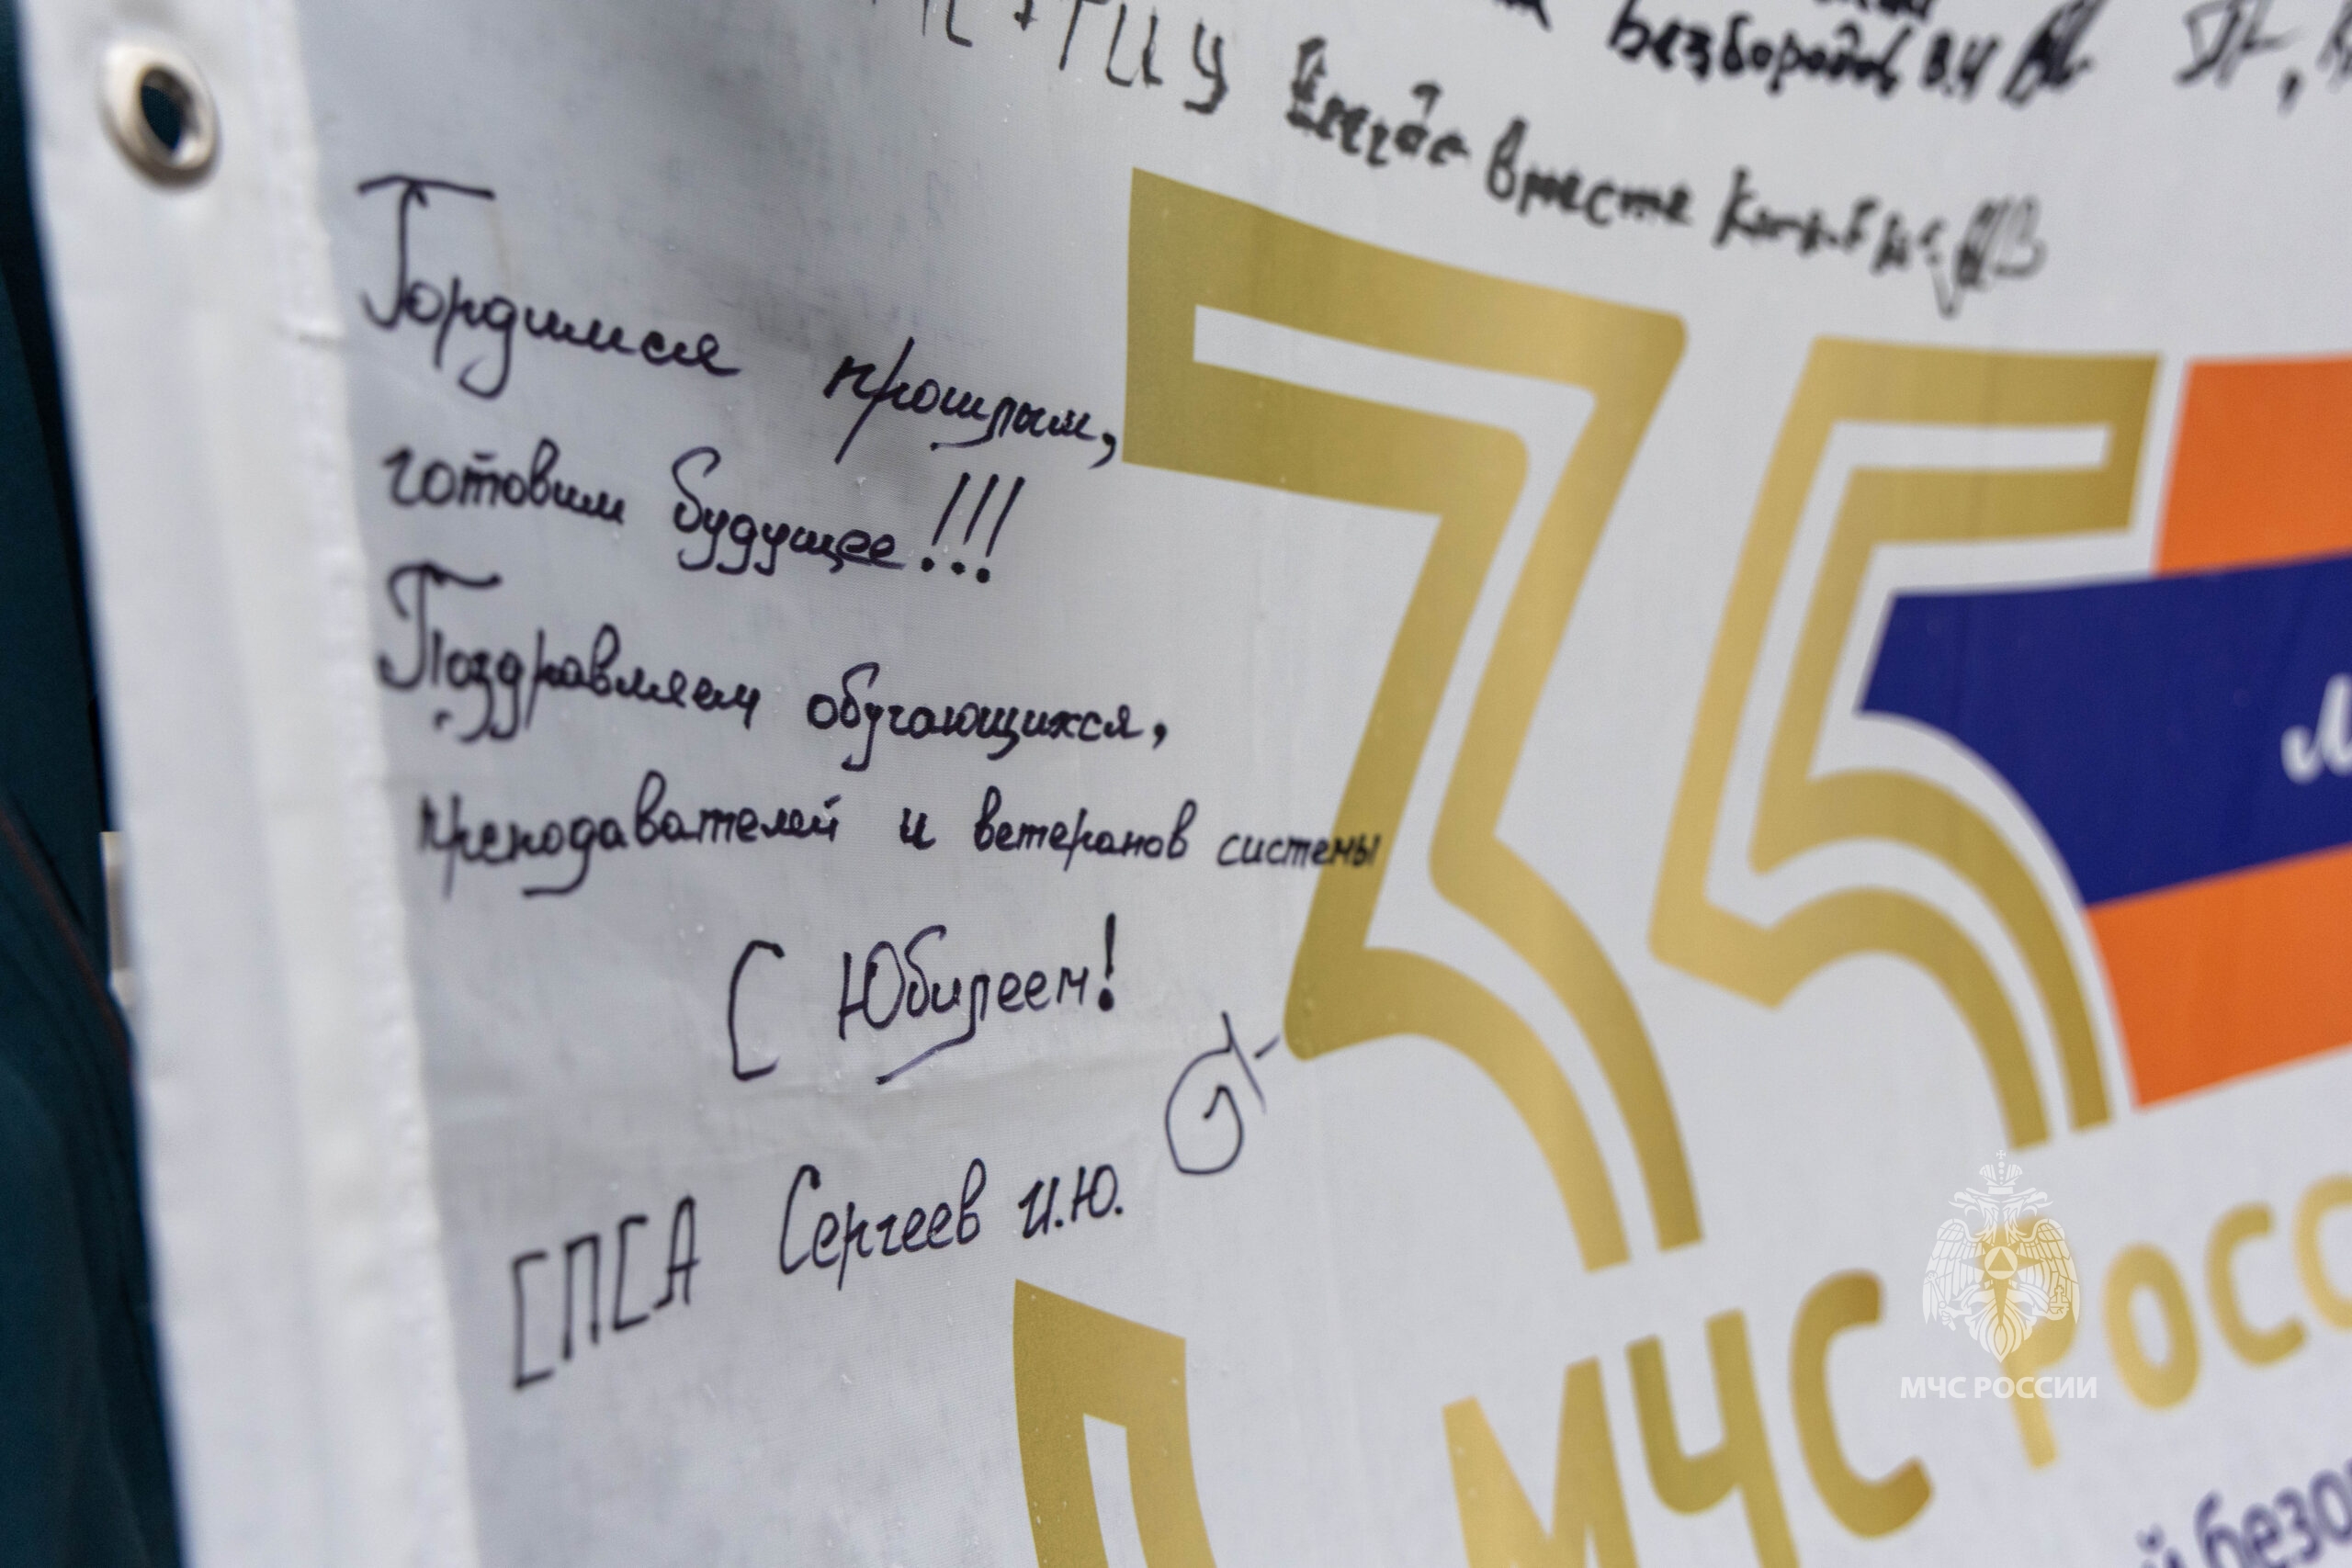 Безбородов В.И
вместе
Гордимся прошлым,
готовим будущее!!!
Поздравляем обучающихся,
преподавателей и ветеранов системы
С Юбилеем!
СПСА Сергеев И.Ю.
35
МЧС РОСС
МЧС РОССИИ